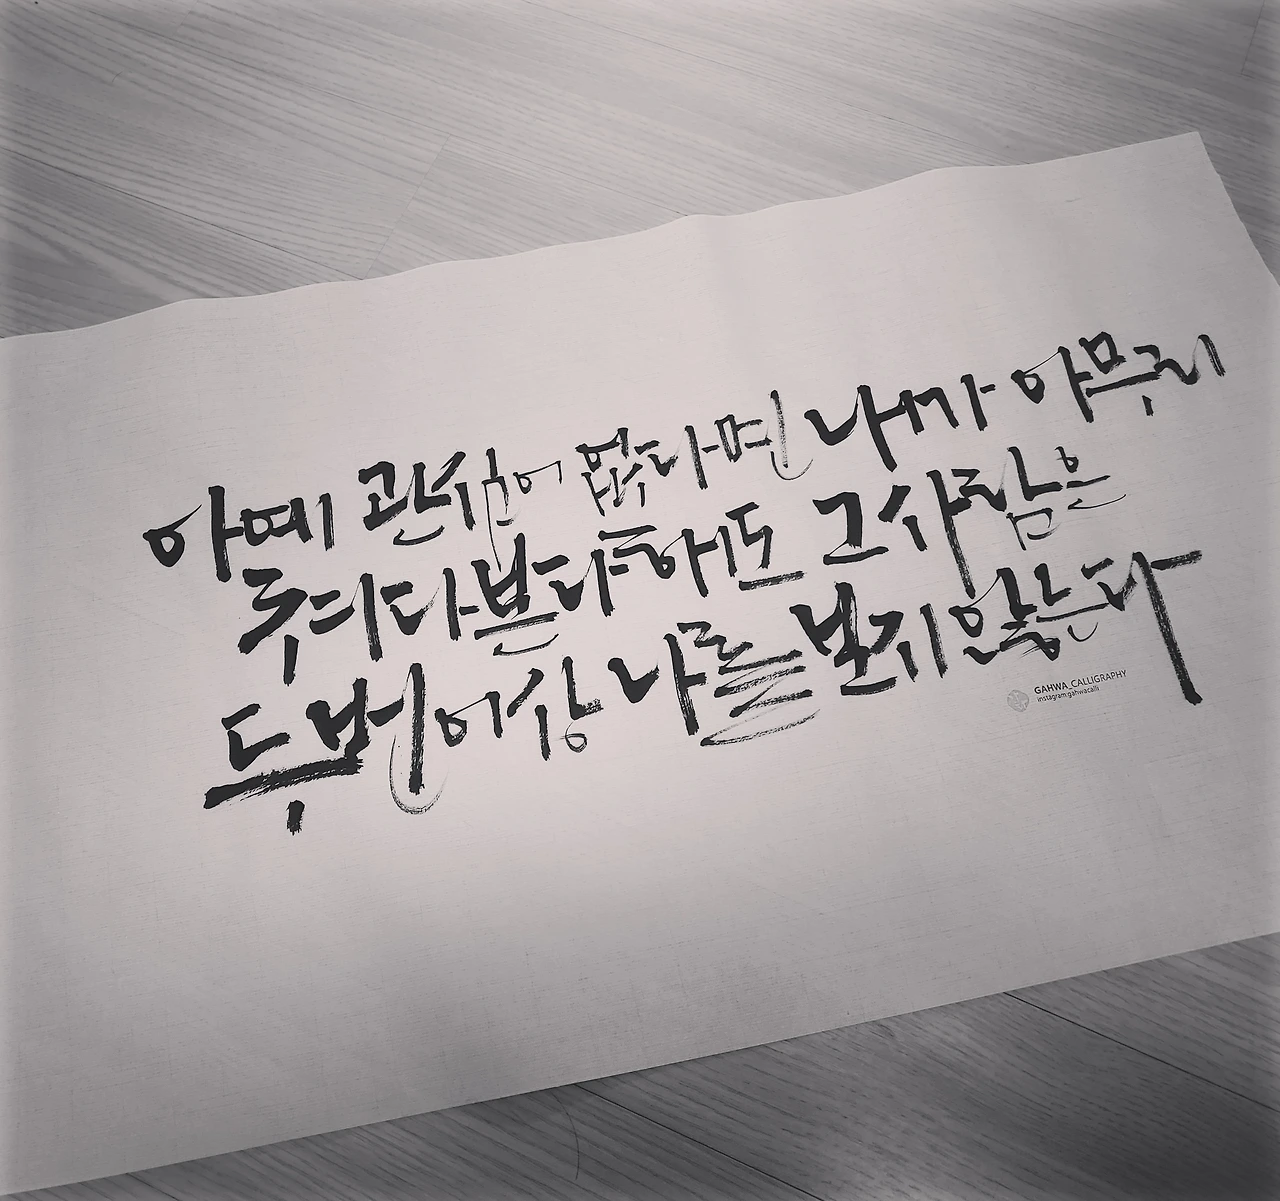 아예 관심이 없다면 내가 아무리
쳐다본다 해도 그 사람은
두번 이상 나를 보지 않는다
GAHWA_CALLIGRAPHY
instagram:gahwacalli